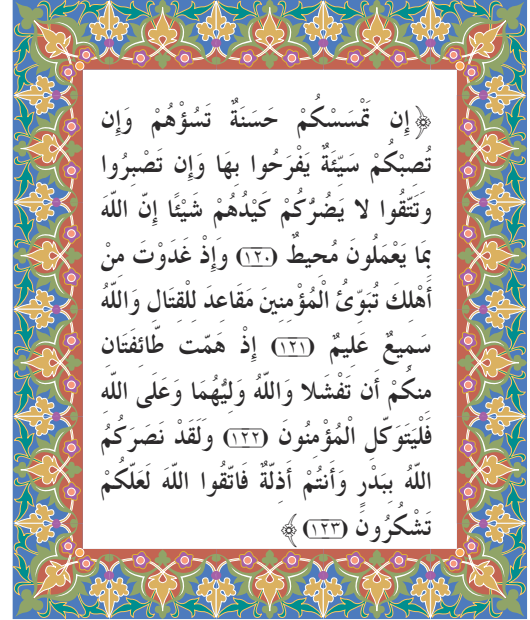 ﴿إِن تَمْسَسْكُمْ حَسَنَةٌ تَسُؤْهُمْ وَإِن
تُصِبْكُمْ سَيِّئَةٌ يَفْرَحُوا بِهَا وَإِن تَصْبِرُوا
وَتَتَّقُوا لا يَضُرُّكُمْ كَيْدُهُمْ شَيْئًا إِنّ اللّهَ
بِمَا يَعْمَلُونَ مُحِيطٌ (١٢٠) وَإِذْ غَدَوْتَ مِنْ
أَهْلِكَ تُبَوِّئُ الْمُؤْمِنِينَ مَقَاعِدَ لِلْقِتَالِ وَاللّهُ
سَمِيعٌ عَلِيمٌ (١٢١) إِذْ هَمّت طّائِفَتَانِ
مِنكُمْ أَن تَفْشَلا وَاللّهُ وَلِيُّهُمَا وَعَلَى اللّهِ
فَلْيَتَوَكّلِ الْمُؤْمِنُونَ (١٢٢) وَلَقَدْ نَصَرَكُمُ
اللّهُ بِبَدْرٍ وَأَنتُمْ أَذِلّةٌ فَاتّقُوا اللّهَ لَعَلّكُمْ
تَشْكُرُونَ (١٢٣)﴾